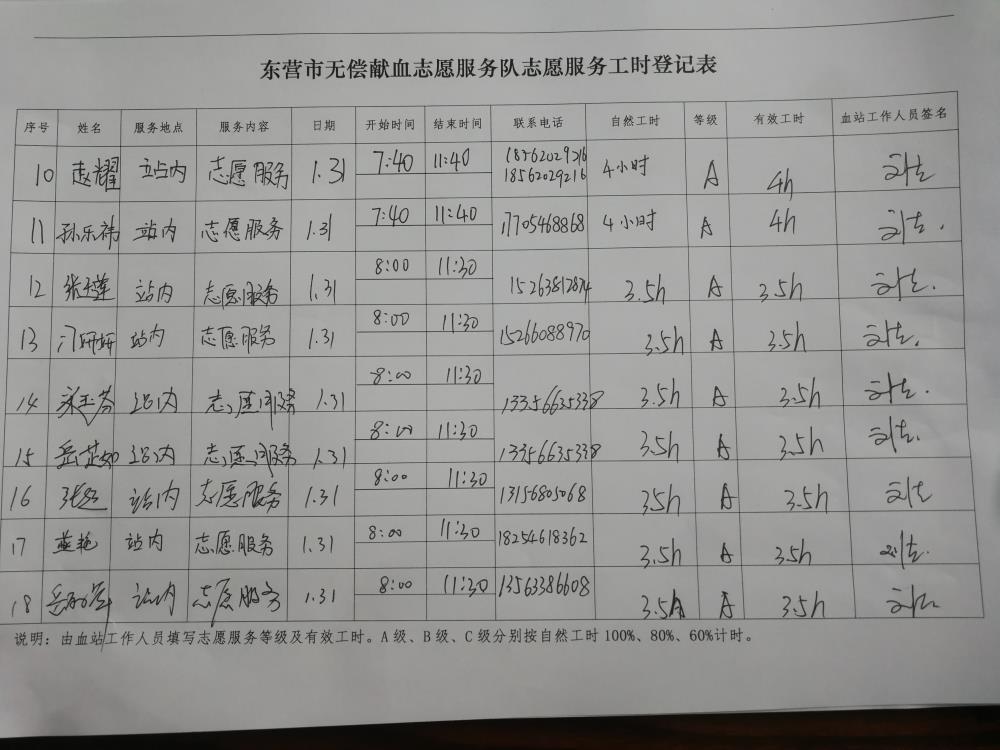 东营市无偿献血志愿服务队志愿服务工时登记表
序号 姓名 服务地点 服务内容 日期 开始时间 结束时间 联系电话 自然工时 等级 有效工时 血站工作人员签名
10 赵耀 站内 志愿服务 1.31 7:40 11:40 18562029216 18562029216 4小时 A 4h
11 孙乐祎 站内 志愿服务 1.31 7:40 11:40 17705468868 4小时 A 4h
12 站内 志愿服务 1.31 8:00 11:30 15263812874 3.5h A 3.5h
13 站内 志愿服务 1.31 8:00 11:30 15266088970 3.5h A 3.5h
14 站内 志愿服务 1.31 8:00 11:30 13356635338 3.5h A 3.5h
15 站内 志愿服务 1.31 8:00 11:30 13356635338 3.5h A 3.5h
16 站内 志愿服务 1.31 8:00 11:30 13156805068 3.5h A 3.5h
17 燕艳 站内 志愿服务 1.31 8:00 11:30 18254618362 3.5h A 3.5h
18 站内 志愿服务 1.31 8:00 11:30 13563386608 3.5h A 3.5h
说明：由血站工作人员填写志愿服务等级及有效工时。A级、B级、C级分别按自然工时100%、80%、60%计时。